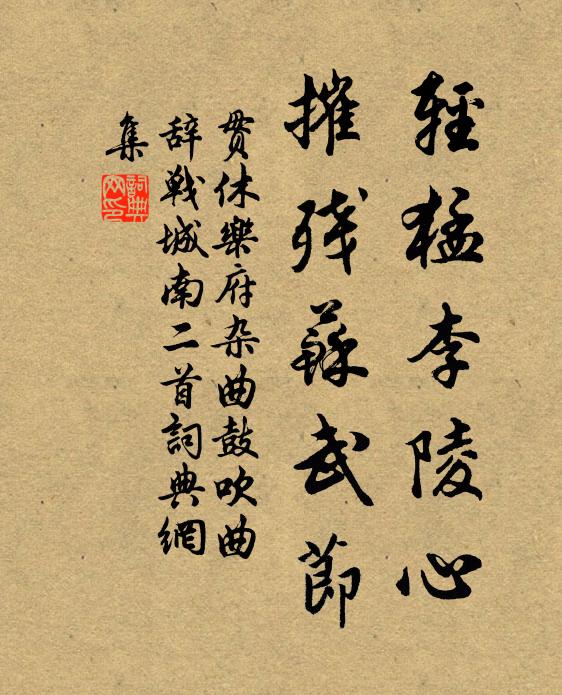 輕猛李陵心
摧殘蘇武節
貫休樂府杂曲鼓吹曲
辞戰城南二首詞典網
集
詞典
网印